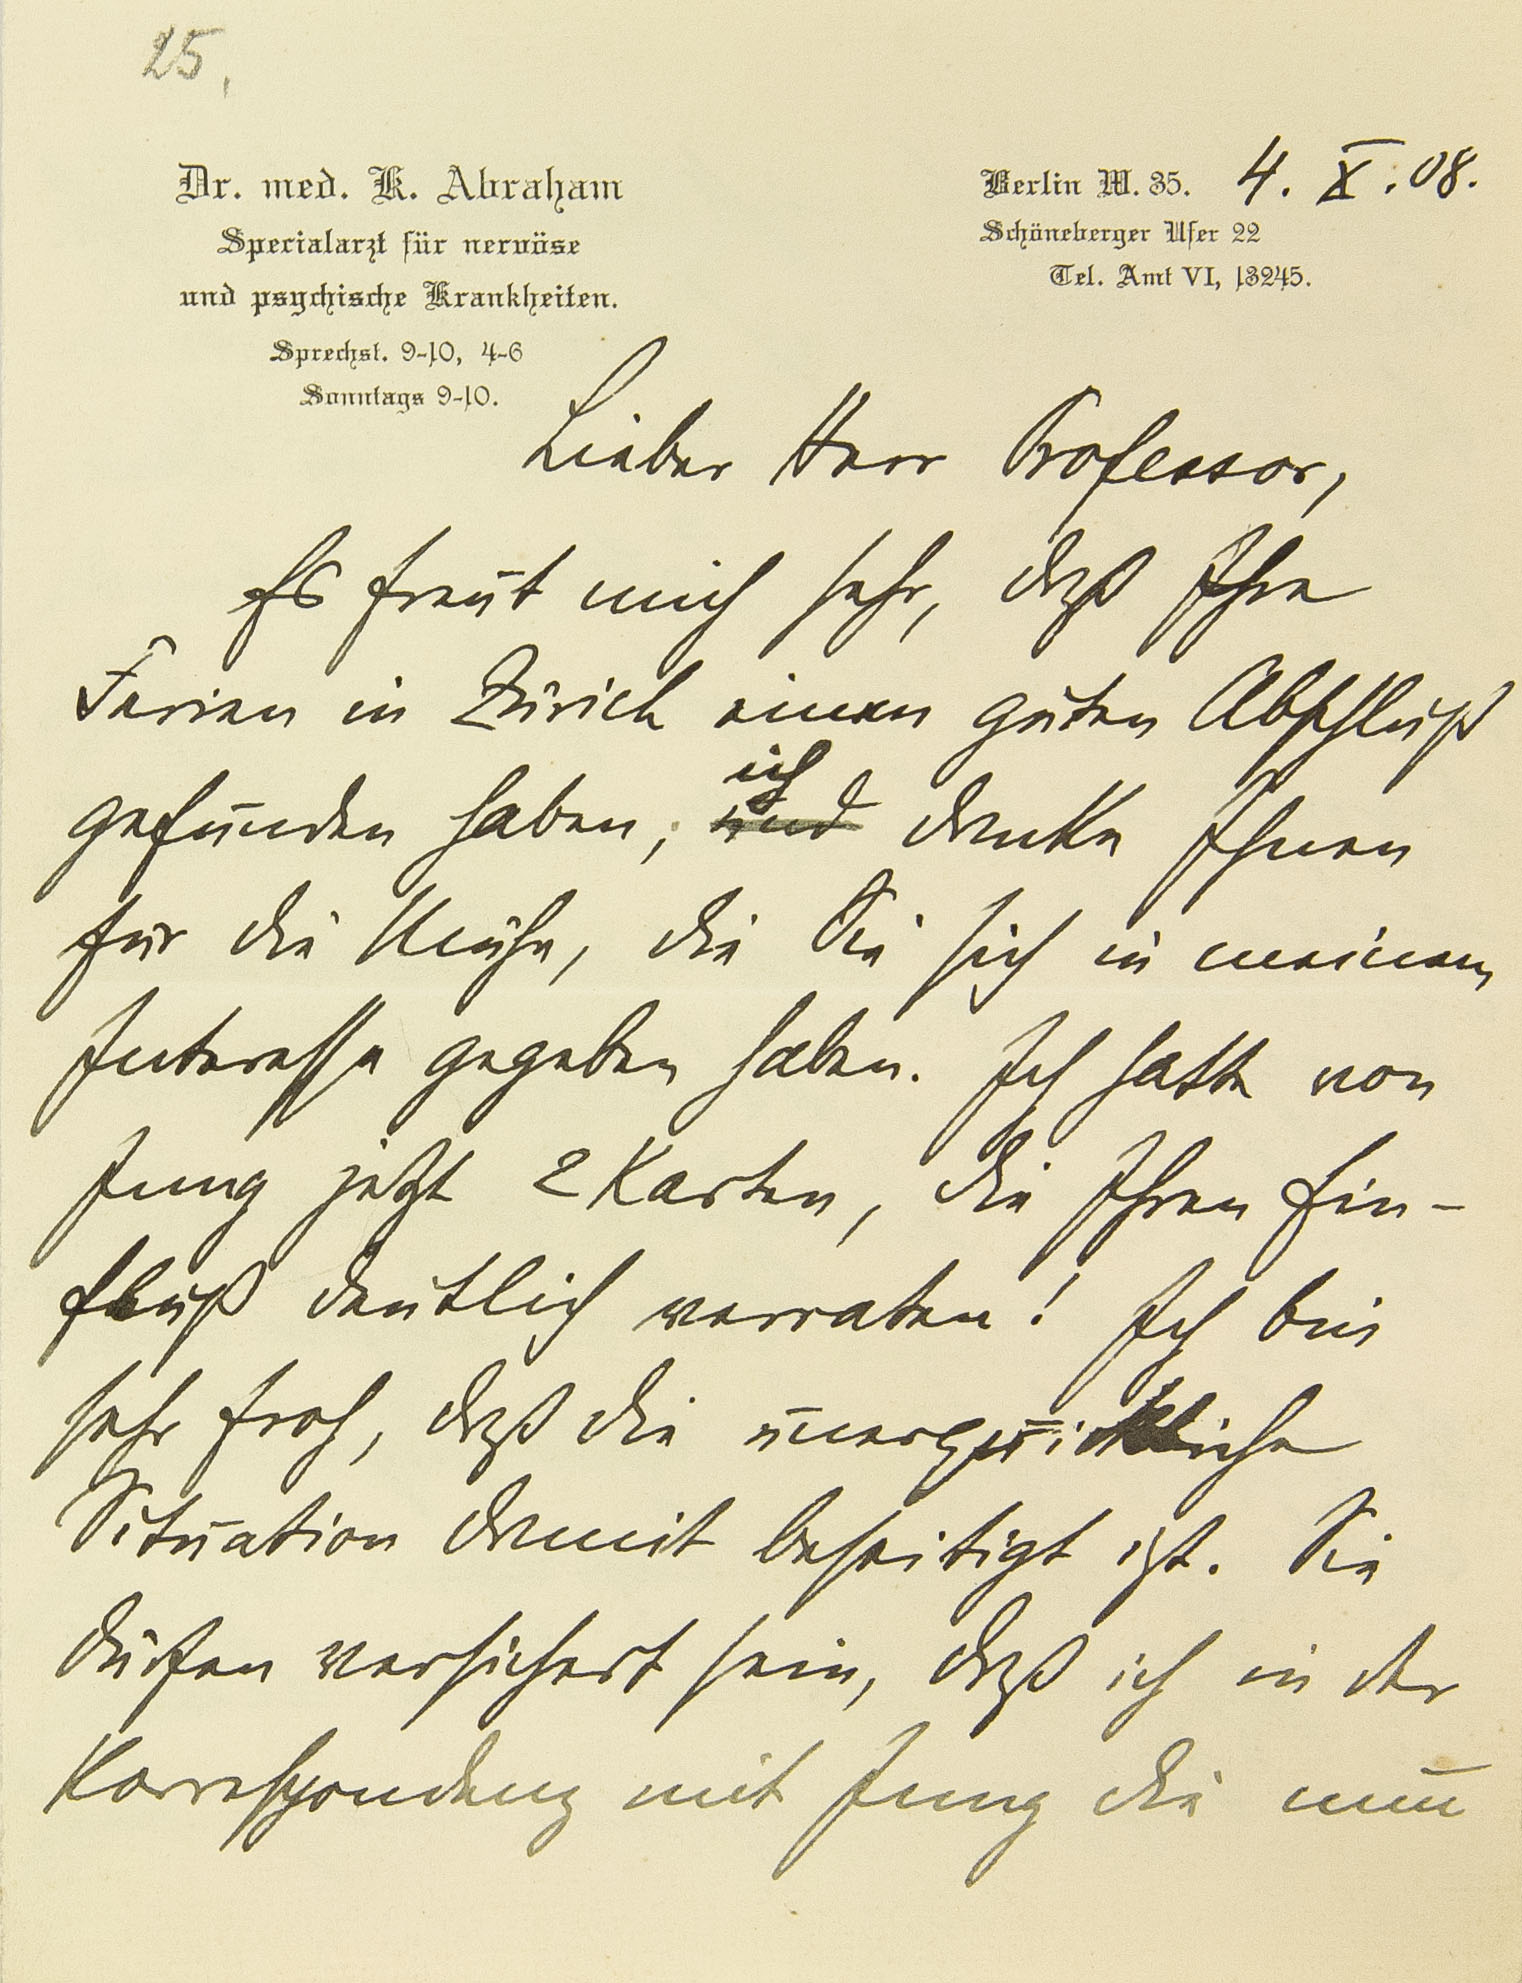 25.
Dr. med. K. Abraham
Specialarzt für nervöse
und psychische Krankheiten.
Sprechst. 9-10, 4-6
Sonntags 9-10.
Berlin W. 35. 4. X. 08.
Schöneberger Ufer 22
Tel. Amt VI, 13245.
Lieber Herr Professor,
Es freut mich sehr, daß Ihre
Ferien in Zürich einen guten Abschluß
gefunden haben; ich
und danke Ihnen
für die Mühe, die Sie sich in meinem
Interesse gegeben haben. Ich hatte von
Jung jetzt 2 Karten, die Ihren Ein-
fluß deutlich verraten! Ich bin
sehr froh, daß die unerquickliche
Situation damit beseitigt ist. Sie
dürfen versichert sein, daß ich in der
Korrespondenz mit Jung die nun